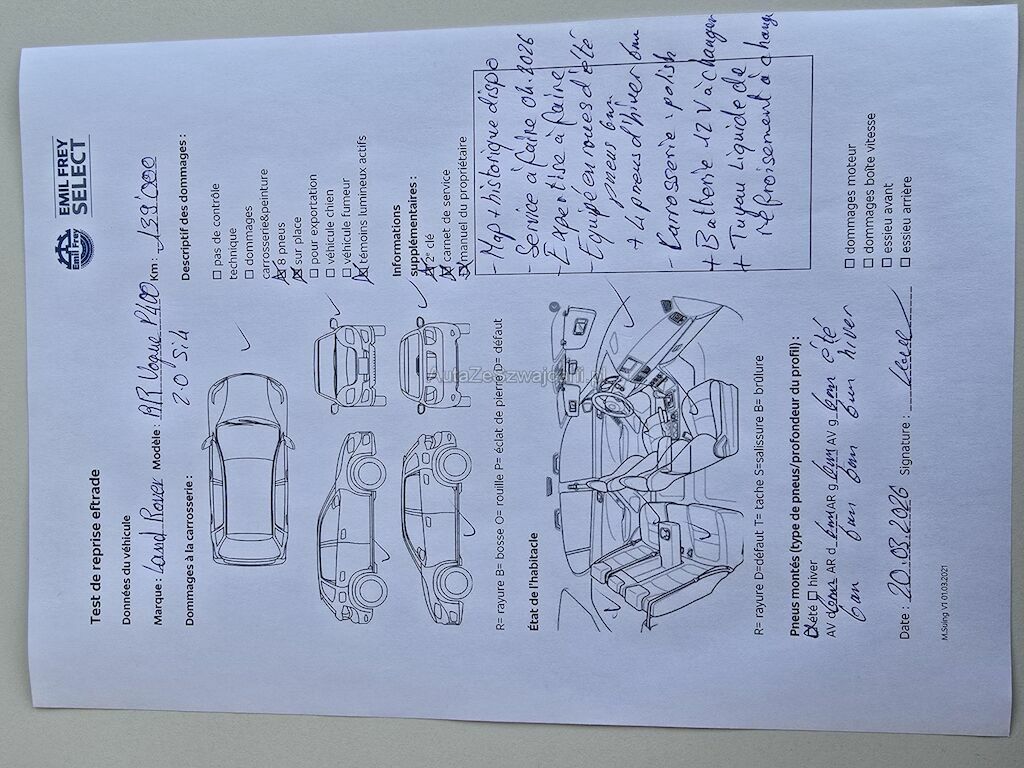 EMIL FREY
SELECT
Emil Frey
Test de reprise eftrade
Données du véhicule
Marque : Land Rover Modèle : RR Vogue P400 Km: 139'000
2.0 Si4
Dommages à la carrosserie :
Descriptif des dommages :
□ pas de contrôle
technique
□ dommages
carrosserie&peinture
☒ 8 pneus
☒ sur place
□ pour exportation
□ véhicule chien
□ véhicule fumeur
☒ témoins lumineux actifs
Informations
supplémentaires :
☒ 2° clé
☒ carnet de service
☒ manuel du propriétaire
R= rayure B= bosse O= rouille P= éclat de pierre D= défaut
État de l'habitacle
- Map + historique dispo
- Service à faire 04.2026
- Expertise à faire
- Equipé en roues d'été
pneus 6m
+ 4 pneus d'hiver 6m
- Carrosserie : polish
+ Batterie 12 V à changer
+ Tuyau Liquide de
refroisement à change
AutaZeSzwajcarii.pl
R= rayure D=défaut T= tache S=salissure B= brûlure
Pneus montés (type de pneus/profondeur du profil) :
☒ été □ hiver
AV d 6m AR d 6m AR g 6m AV g 6m été
6m 6m 6m 6m hiver
□ dommages moteur
□ dommages boîte vitesse
□ essieu avant
□ essieu arrière
Date : 20.03.2026 Signature :
M.Suing V1 01.03.2021